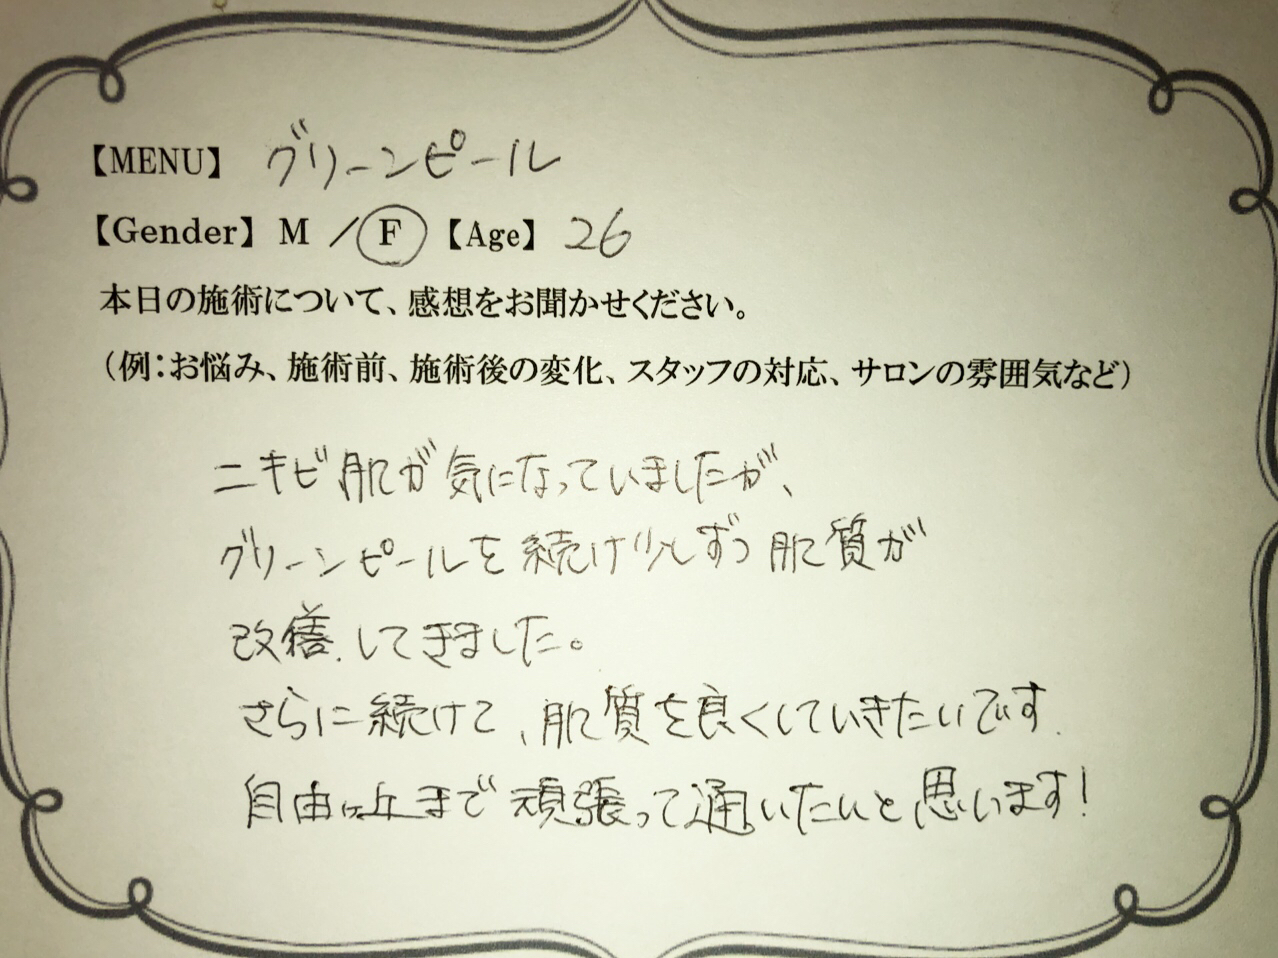 【MENU】 グリーンピール
【Gender】 M / F 【Age】 26
本日の施術について、感想をお聞かせください。
（例：お悩み、施術前、施術後の変化、スタッフの対応、サロンの雰囲気など）
ニキビ肌が気になっていましたが、
グリーンピールを続け少しずつ肌質が
改善してきました。
さらに続けて、肌質を良くしていきたいです.
自由ヶ丘まで頑張って通いたいと思います!